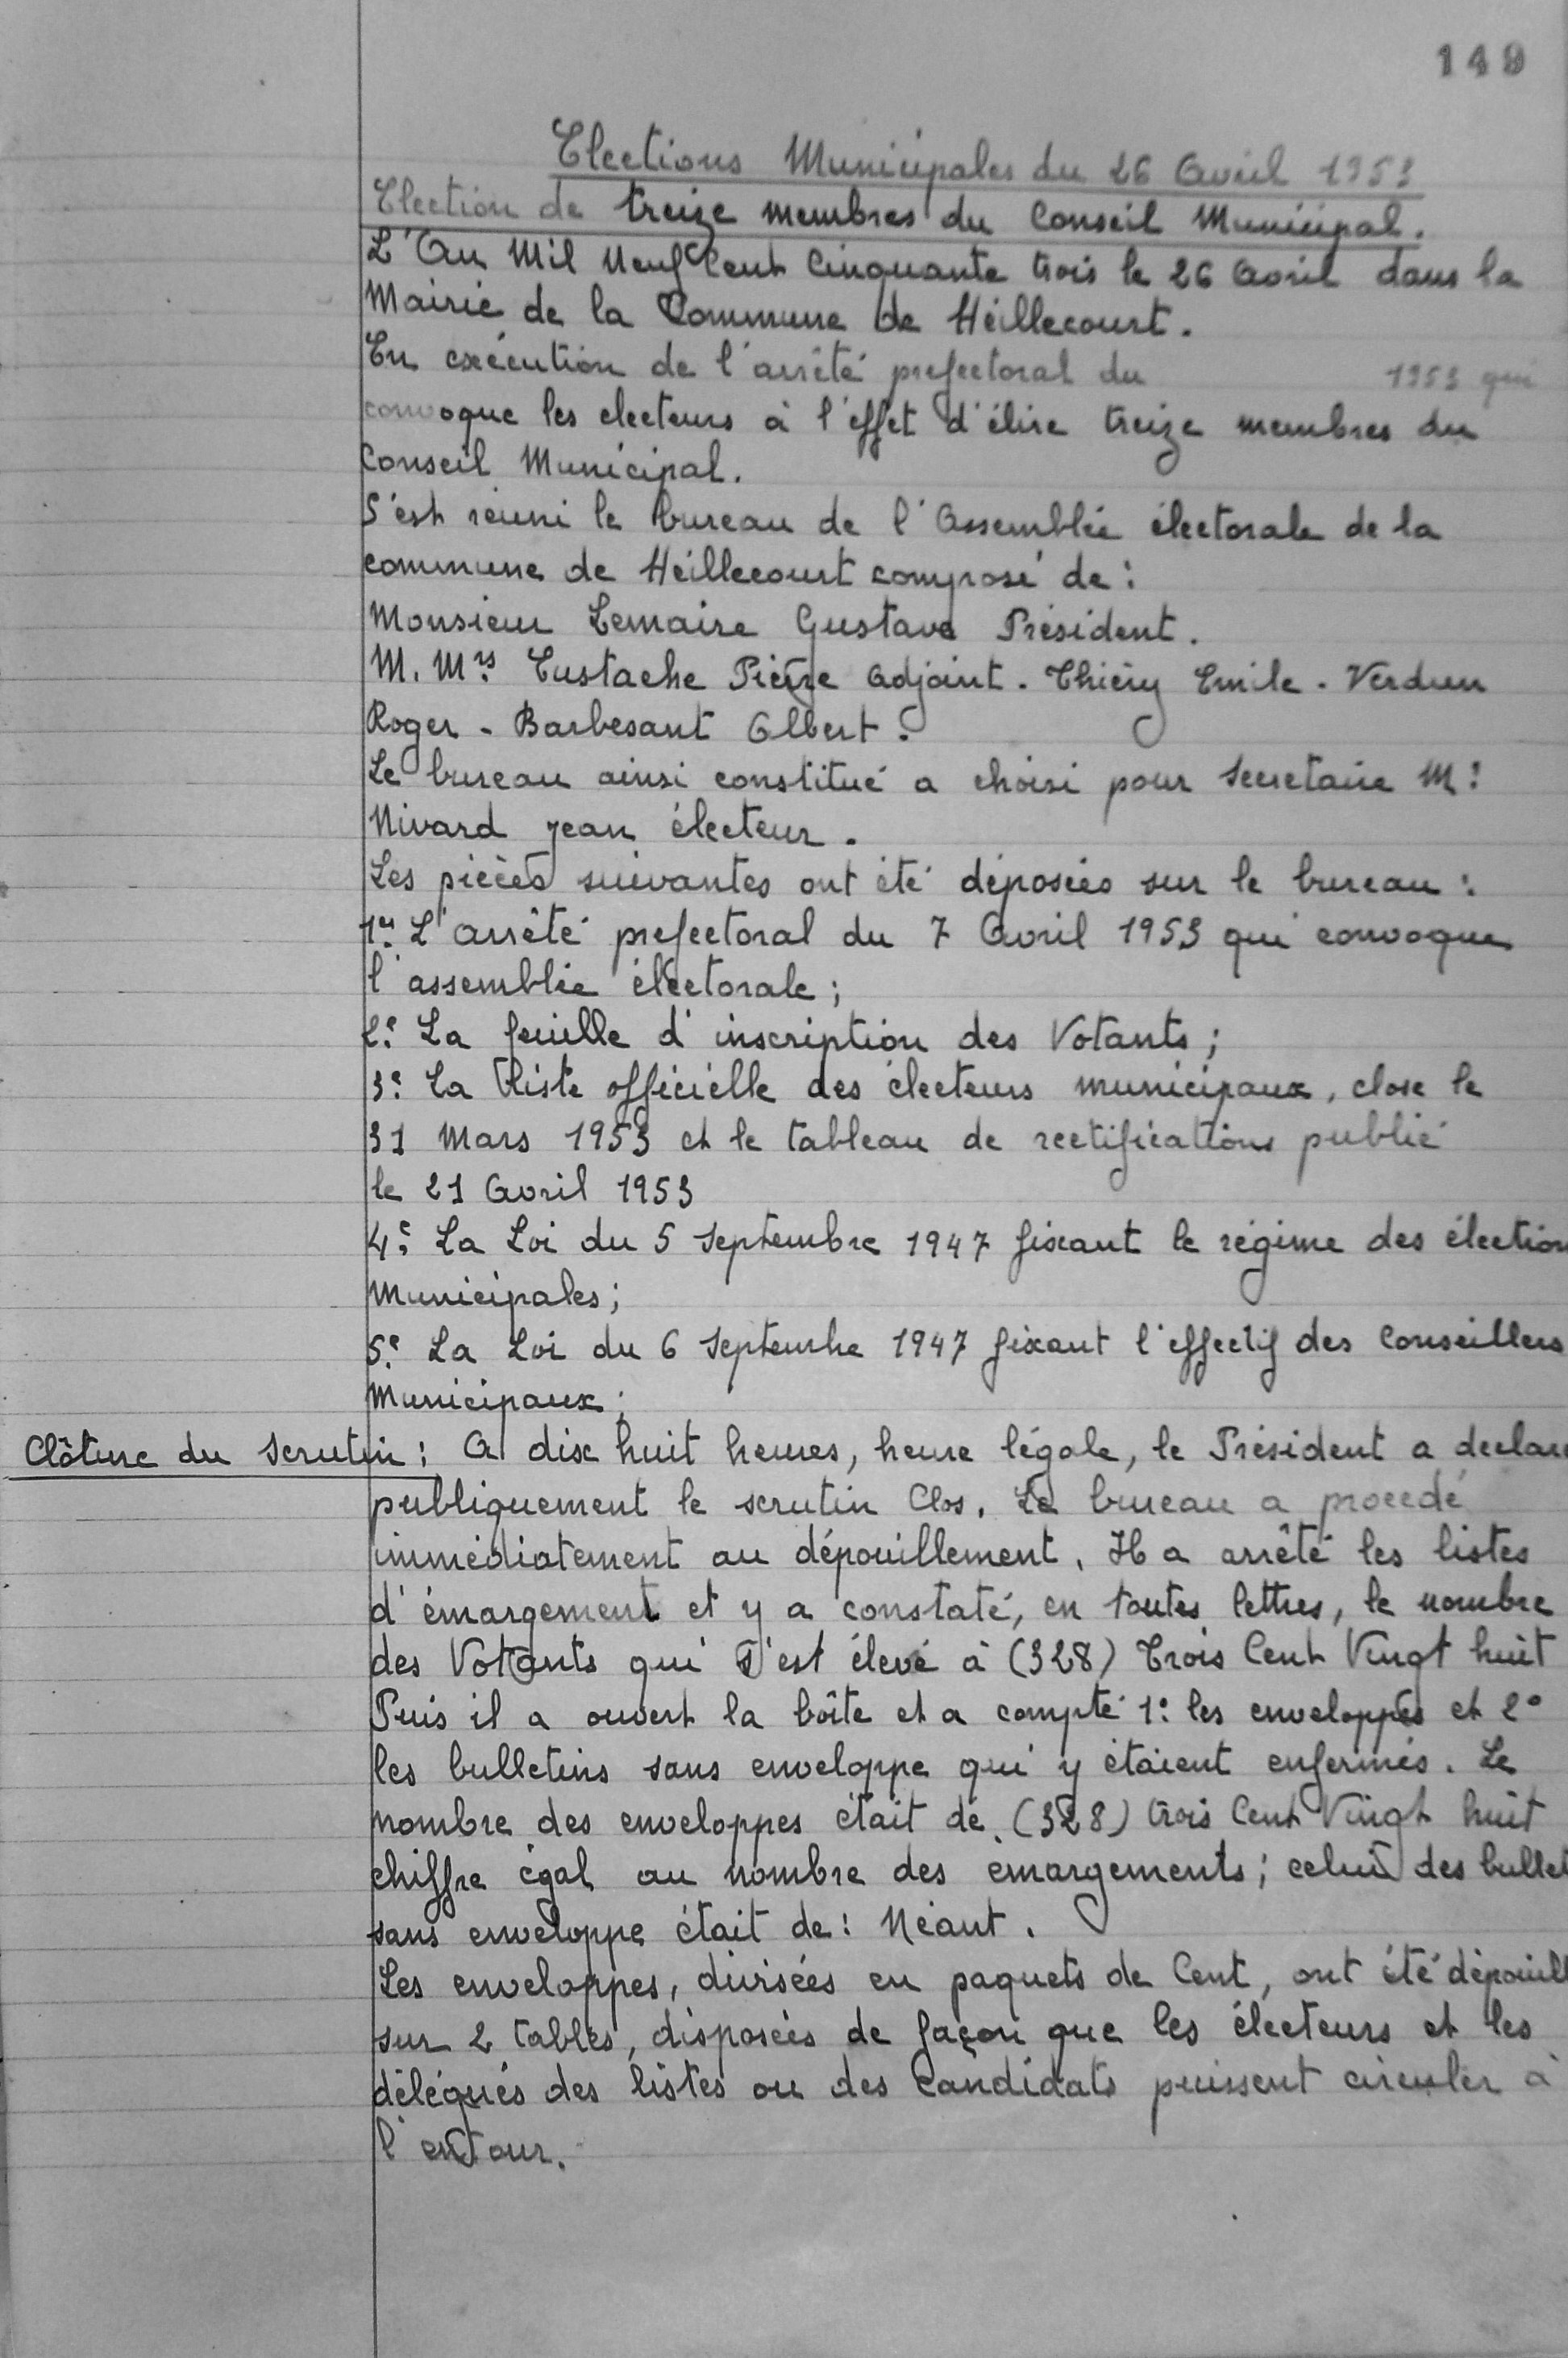 149
Elections Municipales du 26 Avril 1953
Election de treize membres du Conseil Municipal.
L'An Mil Neuf Cent Cinquante trois le 26 Avril dans la
Mairie de la Commune de Heillecourt.
En exécution de l'arrêté prefectoral du 1953 qui
convoque les electeurs à l'effet d'élire treize membres du
Conseil Municipal.
S'est réuni le bureau de l'Assemblée électorale de la
commune de Heillecourt composé de :
Monsieur Lemaire Gustave Président.
M. Mrs Eustache Pierre Adjoint. Thiéry Emile. Verdun
Roger - Barbesant Albert.
Le bureau ainsi constitué a choisi pour secretaire Mr
Nivard Jean électeur.
Les pièces suivantes ont été déposées sur le bureau :
1er L'arrêté prefectoral du 7 Avril 1953 qui convoque
l'assemblée électorale ;
2e La feuille d'inscription des Votants ;
3e La Liste officielle des électeurs municipaux, close le
31 Mars 1953 et le tableau de rectifications publié
le 21 Avril 1953
4e La Loi du 5 Septembre 1947 fixant le régime des élection
Municipales ;
5e La Loi du 6 Septembre 1947 fixant l'effectif des Conseillers
Municipaux ;
Clôture du Scrutin : A dix huit heures, heure légale, le Président a declaré
publiquement le scrutin Clos. Le bureau a procédé
immédiatement au dépouillement. Il a arrêté les listes
d'émargement et y a constaté, en toutes lettres, le nombre
des Votants qui s'est élevé à (328) Trois Cent Vingt huit
Puis il a ouvert la boîte et a compté 1° les enveloppes et 2°
les bulletins sans enveloppe qui y étaient enfermés. Le
nombre des enveloppes était de (328) trois Cent Vingt huit
chiffre égal au nombre des émargements ; celui des bullet
sans enveloppe était de : Néant.
Les enveloppes, divisées en paquets de Cent, ont été dépouill
sur 2 tables, disposées de façon que les électeurs et les
délégués des listes ou des Candidats puissent circuler à
l'entour.